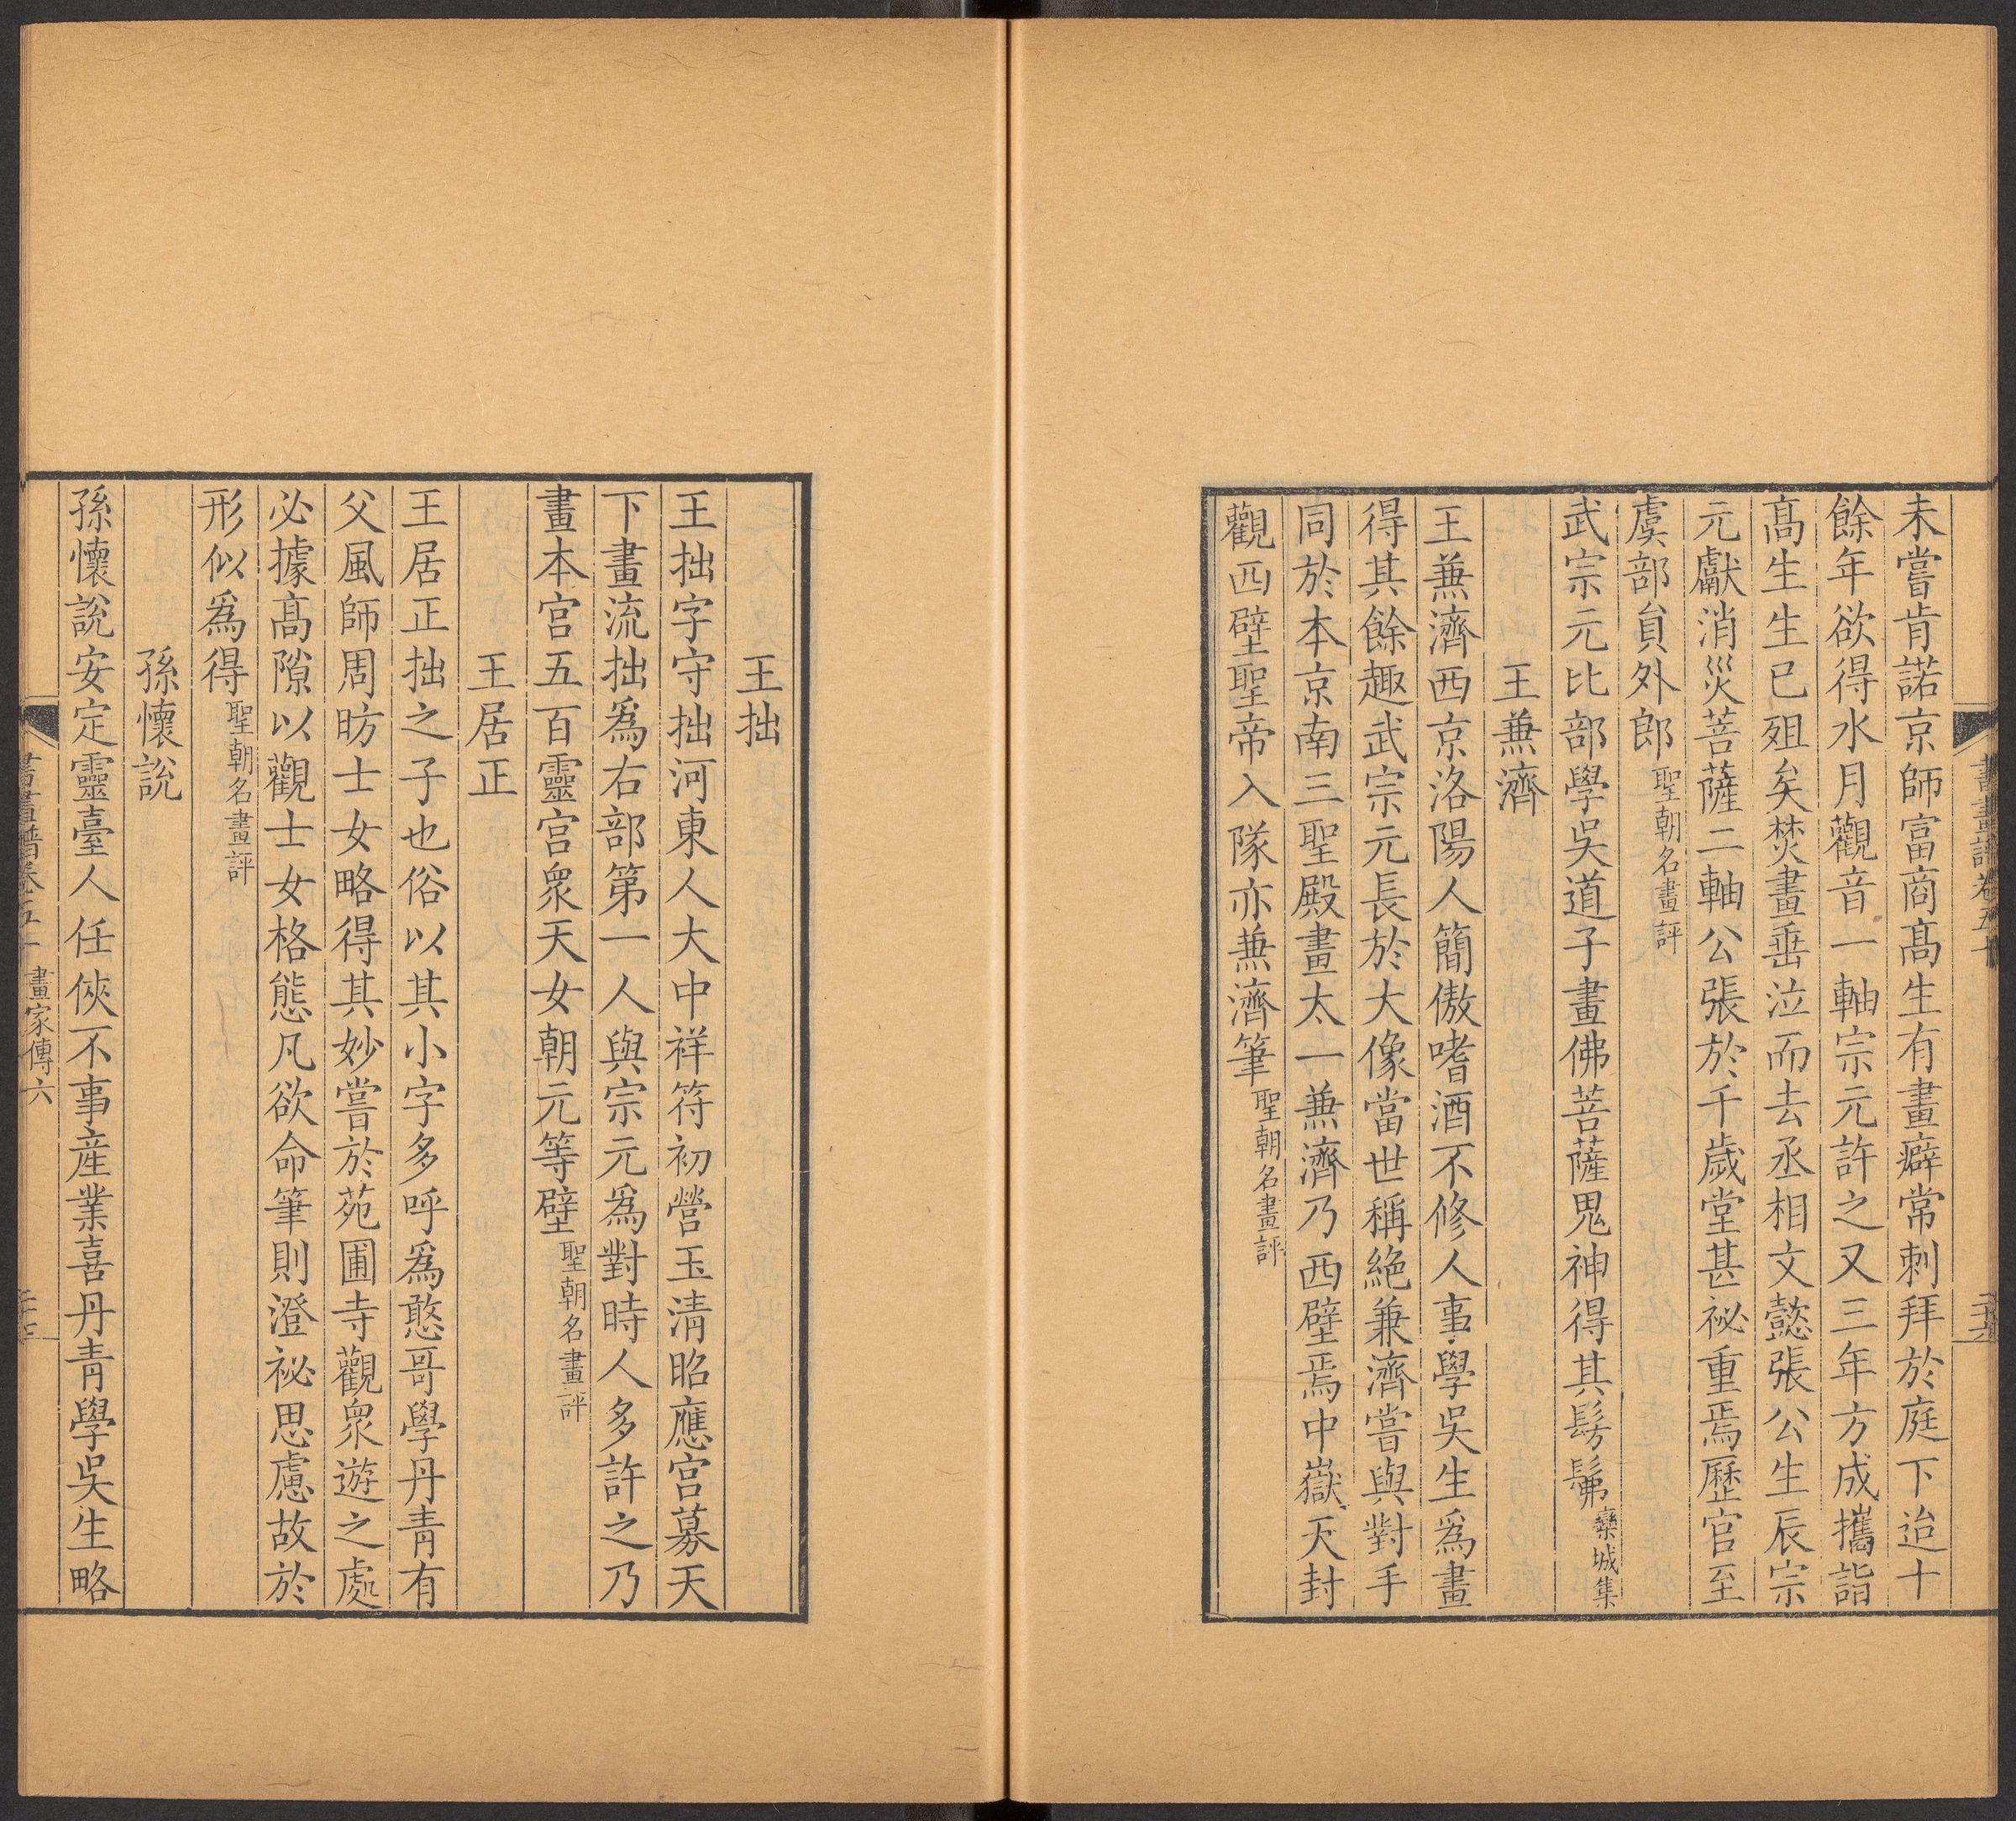 未嘗肯諾京師富商髙生有畫癖常刺拜於庭下迨十
餘年欲得水月觀音一軸宗元許之又三年方成攜詣
髙生生已殂矣焚畫垂泣而去丞相文懿張公生辰宗
元獻消災菩薩二軸公張於千歲堂甚祕重焉歷官至
虞部貟外郎聖朝名畫評
武宗元比部學吳道子畫佛菩薩鬼神得其髣髴欒城集
王兼濟
王兼濟西京洛陽人簡傲嗜酒不修人事學吳生爲畫
得其餘趣武宗元長於大像當世稱絕兼濟嘗與對手
同於本京南三聖殿畫太一兼濟乃西壁焉中嶽天封
觀西壁聖帝入隊亦兼濟筆聖朝名畫評
王拙
王拙字守拙河東人大中祥符初營玉清昭應宫募天
下畫流拙爲右部第一人與宗元爲對時人多許之乃
畫本宫五百靈宫衆天女朝元等壁聖朝名畫評
王居正
王居正拙之子也俗以其小字多呼爲憨哥學丹青有
父風師周昉士女略得其妙嘗於苑圃寺觀衆遊之處
必據髙隙以觀士女格態凡欲命筆則澄祕思慮故於
形似爲得聖朝名畫評
孫懷說
孫懷說安定靈臺人任俠不事産業喜丹青學吳生略
書畫譜卷五十 畫家傳六